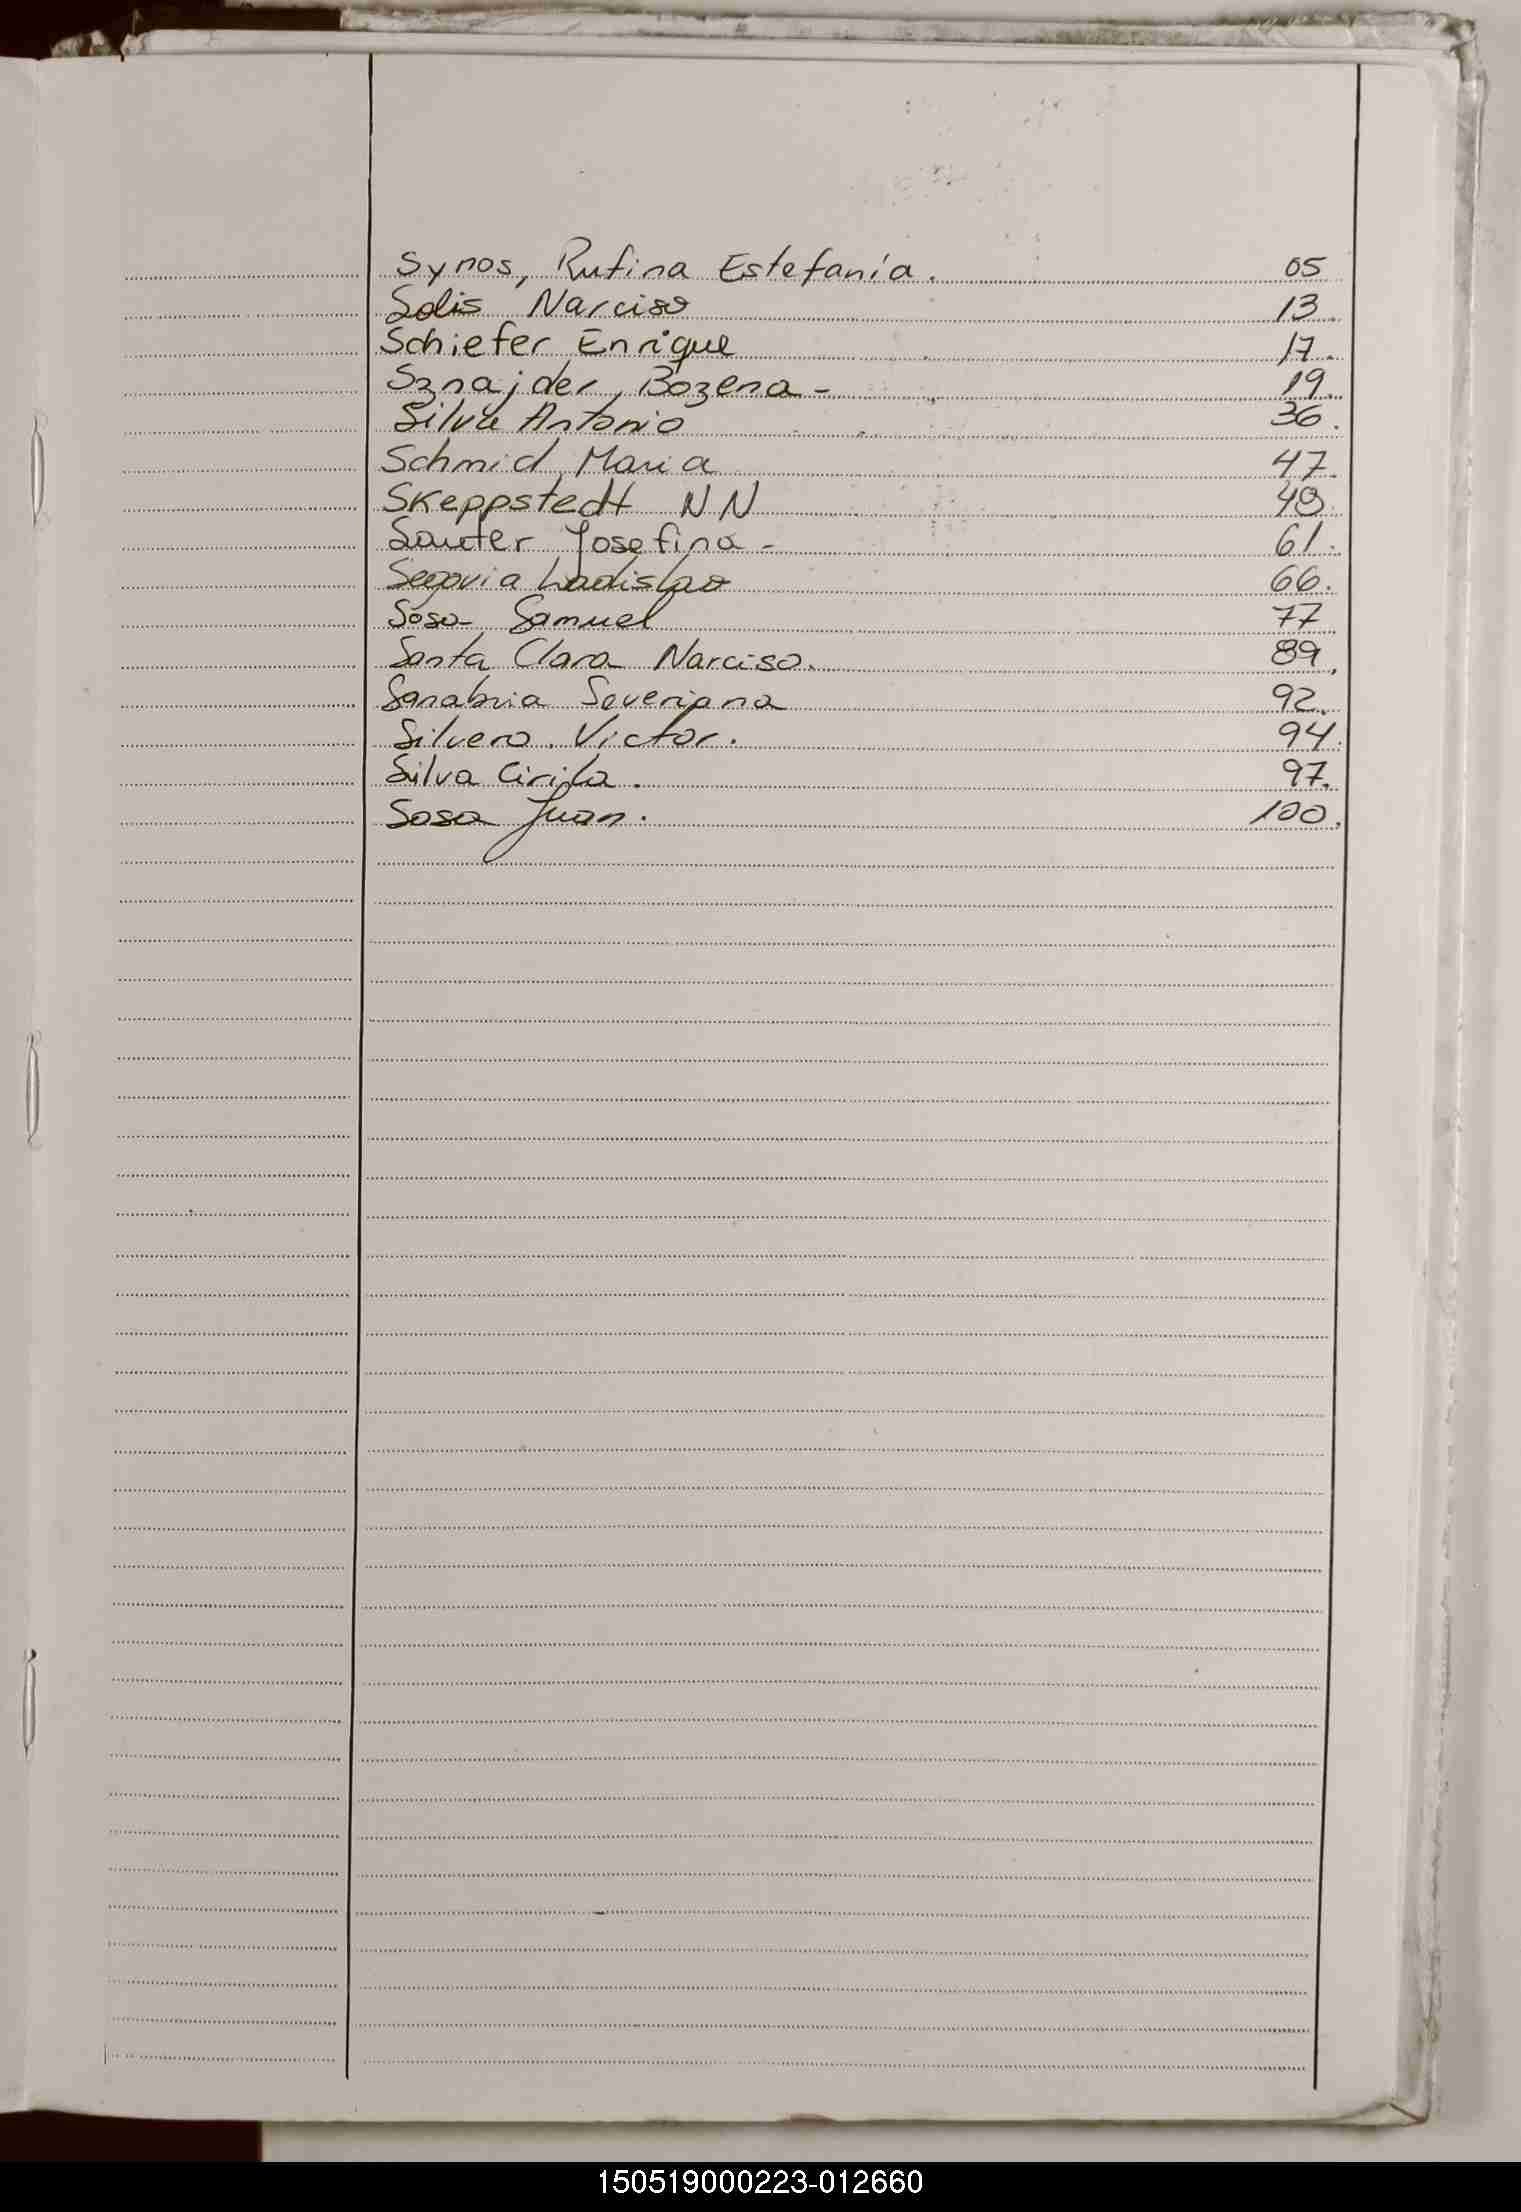 Synos, Rufina Estefanía. 05
Solis Narciso 13.
Schiefer Enrique 17.
Sznajder, Bozena - 19.
Silva Antonio 36.
Schmid, Maria 47.
Skeppstedt NN 48.
Sauter Josefina - 61.
Segovia Ladislao 66.
Sosa Samuel 77
Santa Clara Narciso. 89.
Sanabria Severiana 92.
Silvero. Victor. 94.
Silva Cirila. 97.
Sosa Juan. 100.
150519000223-012660